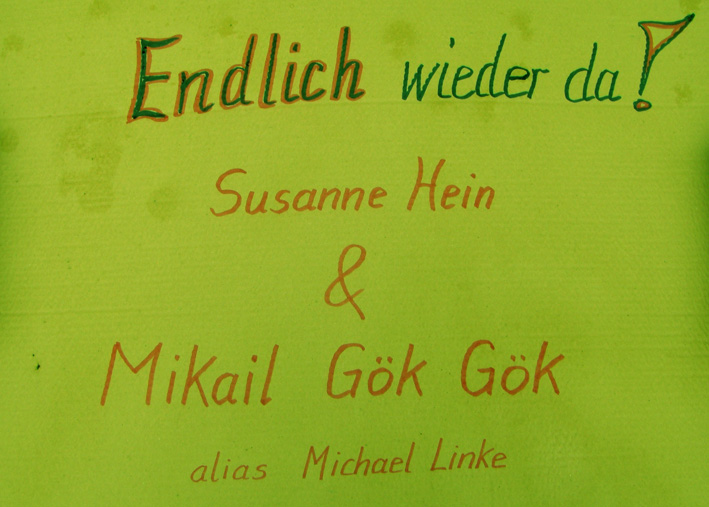 Endlich wieder da!
Susanne Hein
&
Mikail Gök Gök
alias Michael Linke